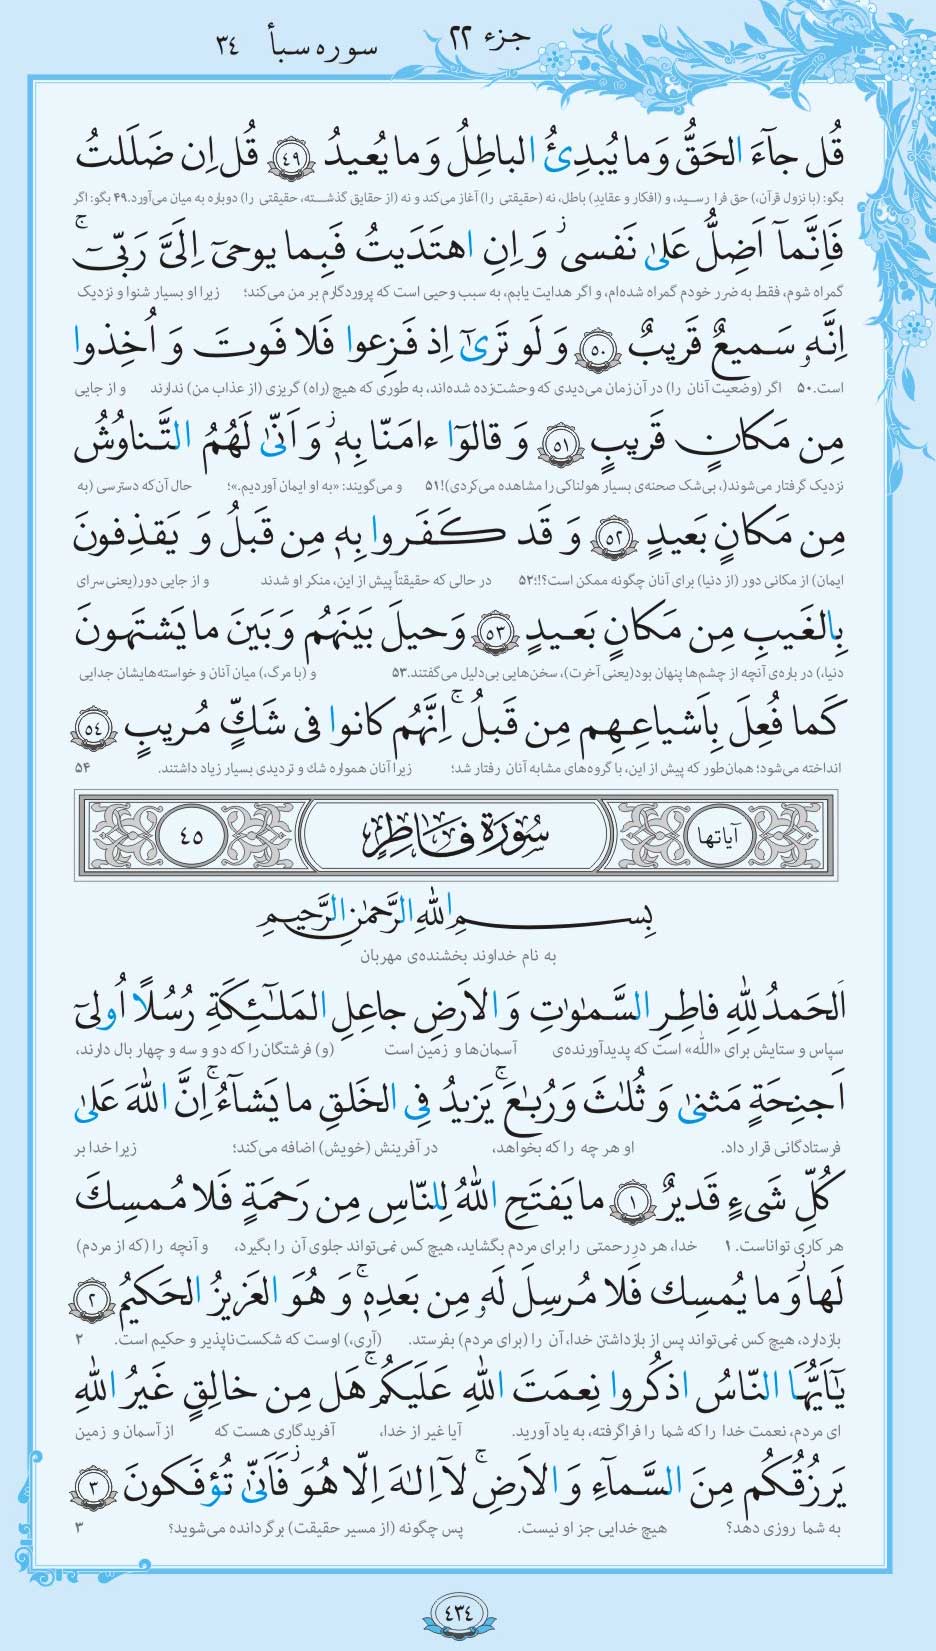 جزء ٢٢
سوره سبأ ٣٤
قُل جآءَ الحَقُّ وَ ما يُبدِئُ الباطِلُ وَ ما يُعيدُ ٤٩ قُل اِن ضَلَلتُ
بگو: (با نزول قرآن،) حق فرا رسید، و (افکار و عقاید) باطل، نه (حقیقتی را) آغاز می‌کند و نه (از حقایق گذشــته، حقیقتی را) دوباره به میان می‌آورد.۴۹ بگو: اگر
فَاِنَّمآ اَضِلُّ عَلىٰ نَفسی ۖ وَ اِنِ اهتَدَيتُ فَبِما يوحیٓ اِلَیَّ رَبّیٓ ۚ
گمراه شوم، فقط به ضرر خودم گمراه شده‌ام، و اگر هدایت یابم، به سبب وحیی است که پروردگارم بر من می‌کند؛ زیرا او بسیار شنوا و نزدیک
اِنَّهٗ سَمیعٌ قَریبٌ ٥٠ وَ لَو تَرىٰٓ اِذ فَزِعوا فَلا فَوتَ وَ اُخِذوا
است.۵۰ اگر (وضعیت آنان را) در آن‌زمان می‌دیدی که وحشت‌زده شده‌اند، به طوری که هیچ (راه) گریزی (از عذاب من) ندارند و از جایی
مِن مَكانٍ قَریبٍ ٥١ وَ قالوٓا ءامَنّا بِهٖ ۚ وَ اَنّىٰ لَهُمُ التَّناوُشُ
نزدیک گرفتار می‌شوند(، بی‌شک صحنه‌ی بسیار هولناکی را مشاهده می‌کردی)!۵۱ و می‌گویند: «به او ایمان آوردیم.»؛ حال آن‌که دسترسی (به
مِن مَكانٍ بَعیدٍ ٥٢ وَ قَد كَفَروا بِهٖ مِن قَبلُ وَ يَقذِفونَ
ایمان) از مکانی دور (از دنیا) برای آنان چگونه ممکن است؟!؛۵۲ در حالی که حقیقتاً پیش از این، منکر او شدند و از جایی دور(یعنی سرای
بِالغَيبِ مِن مَكانٍ بَعیدٍ ٥٣ وَ حیلَ بَينَهُم وَ بَينَ ما يَشتَهونَ
دنیا،) در باره‌ی آنچه از چشم‌ها پنهان بود(یعنی آخرت)، سخن‌هایی بی‌دلیل می‌گفتند.۵۳ و (با مرگ،) میان آنان و خواسته‌هایشان جدایی
كَما فُعِلَ بِاَشیاعِهِم مِن قَبلُ ۚ اِنَّهُم كانوا فی شَكٍّ مُریبٍ ٥٤
انداخته می‌شود؛ همان‌طور که پیش از این، با گروه‌های مشابه آنان رفتار شد؛ زیرا آنان همواره شك و تردیدی بسیار زیاد داشتند. ۵۴
آیاتها سُورَة فَاطِرٍ ٤٥
بِسمِ اللهِ الرَّحمٰنِ الرَّحیمِ
به نام خداوند بخشنده‌ی مهربان
اَلحَمدُ لِلّٰهِ فاطِرِ السَّمٰوٰتِ وَ الاَرضِ جاعِلِ المَلٰٓئِكَةِ رُسُلًا اُولیٓ
سپاس و ستایش برای «اللّٰه» است که پدیدآورنده‌ی آسمان‌ها و زمین است (و) فرشتگان را که دو و سه و چهار بال دارند،
اَجنِحَةٍ مَثنىٰ وَ ثُلٰثَ وَ رُبٰعَ ۚ يَزیدُ فِی الخَلقِ ما يَشآءُ ۚ اِنَّ اللهَ عَلىٰ
فرستادگانی قرار داد. او هر چه را که بخواهد، در آفرینش (خویش) اضافه می‌کند؛ زیرا خدا بر
كُلِّ شَیءٍ قَدیرٌ ١ ما يَفتَحِ اللهُ لِلنّاسِ مِن رَحمَةٍ فَلا مُمسِكَ
هر کاری تواناست. ۱ خدا، هر درِ رحمتی را برای مردم بگشاید، هیچ کس نمی‌تواند جلوی آن را بگیرد، و آنچه را (که از مردم)
لَها ۖ وَ ما يُمسِك فَلا مُرسِلَ لَهٗ مِن بَعدِهٖ ۚ وَ هُوَ العَزیزُ الحَكیمُ ٢
بازدارد، هیچ کس نمی‌تواند پس از بازداشتن خدا، آن را (برای مردم) بفرستد. (آری،) اوست که شکست‌ناپذیر و حکیم است. ۲
يٰٓاَيُّهَا النّاسُ اذكُروا نِعمَتَ اللهِ عَلَيكُم ۚ هَل مِن خالِقٍ غَيرُ اللهِ
ای مردم، نعمت خدا را که شما را فراگرفته، به یاد آورید. آیا غیر از خدا، آفریدگاری هست که از آسمان و زمین
يَرزُقُكُم مِنَ السَّمآءِ وَ الاَرضِ ۚ لآ اِلٰهَ اِلّا هُوَ ۖ فَاَنّىٰ تُؤفَكونَ ٣
به شما روزی دهد؟ هیچ خدایی جز او نیست. پس چگونه (از مسیر حقیقت) برگردانده می‌شوید؟ ۳
٤٣٤